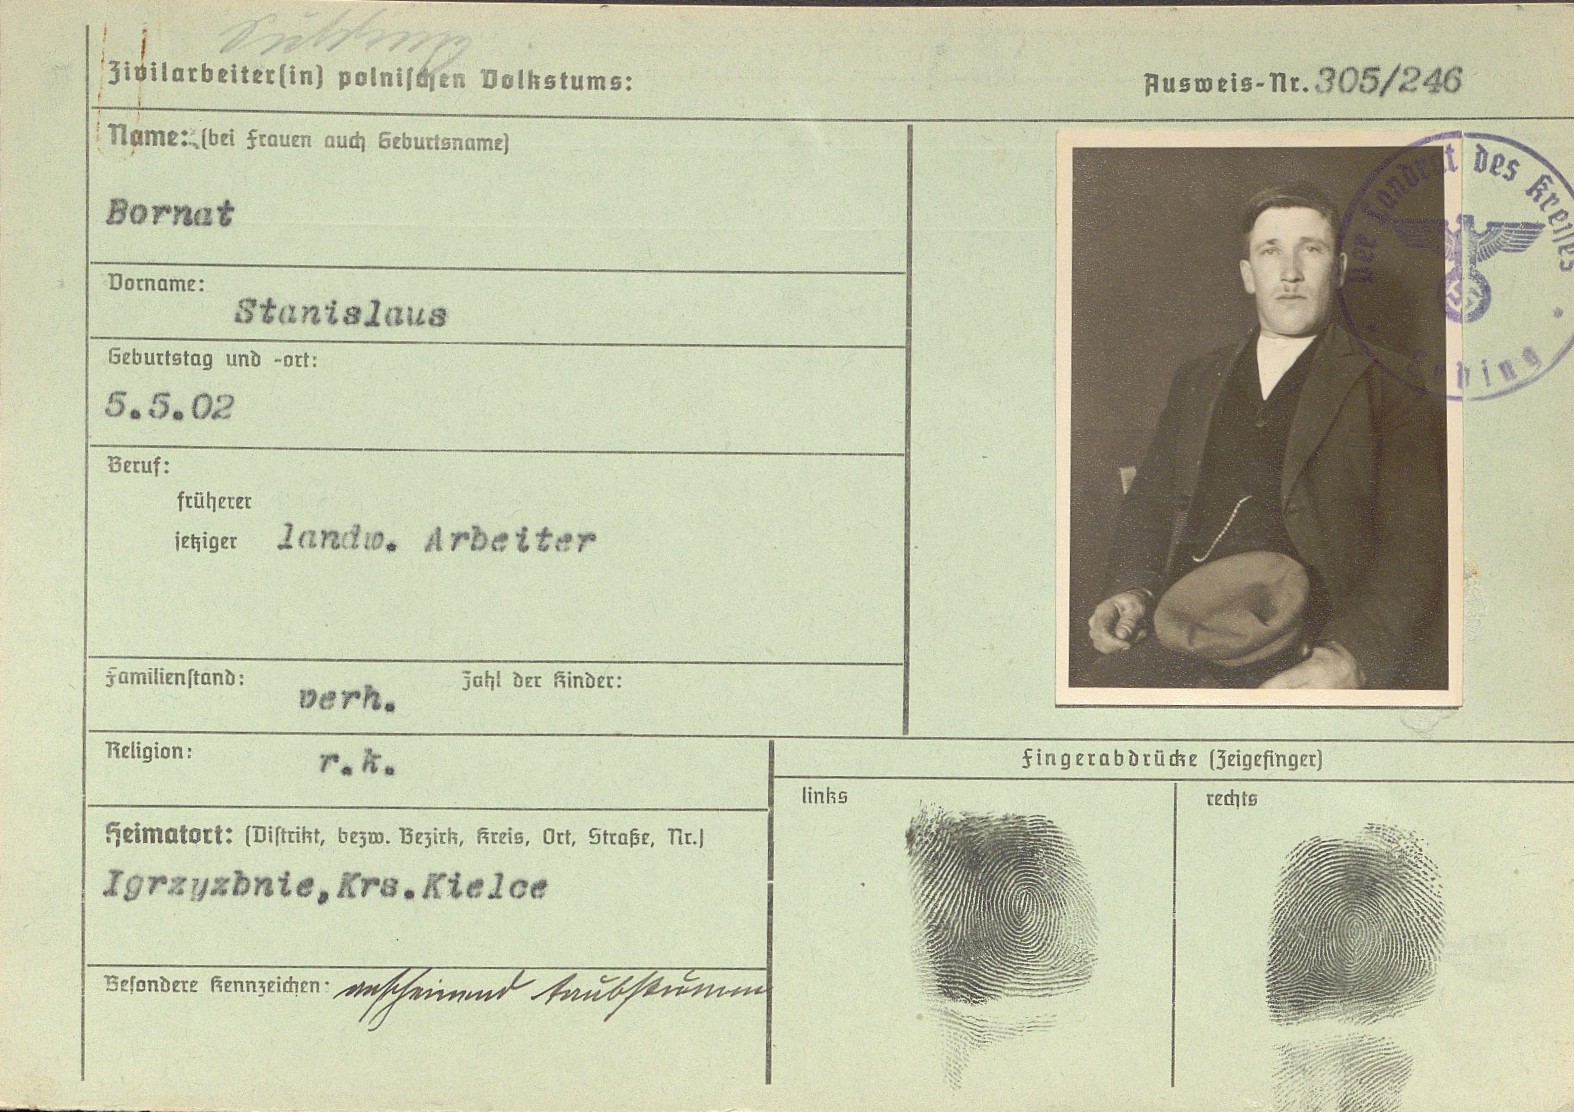 Zivilarbeiter(in) polnischen Volkstums:
Ausweis-Nr. 305/246
Name: (bei Frauen auch Geburtsname)
Bornat
Vorname:
Stanislaus
Geburtstag und -ort:
5.5.02
Beruf:
früherer
jetziger landw. Arbeiter
Familienstand: verh. Zahl der Kinder:
Religion: r.k.
Heimatort: (Distrikt, bezw. Bezirk, Kreis, Ort, Straße, Nr.)
Igrzyzbnie,Krs.Kielce
Besondere Kennzeichen: anscheinend taubstumm
Der Landrat des Kreises
Fingerabdrücke (Zeigefinger)
links
rechts